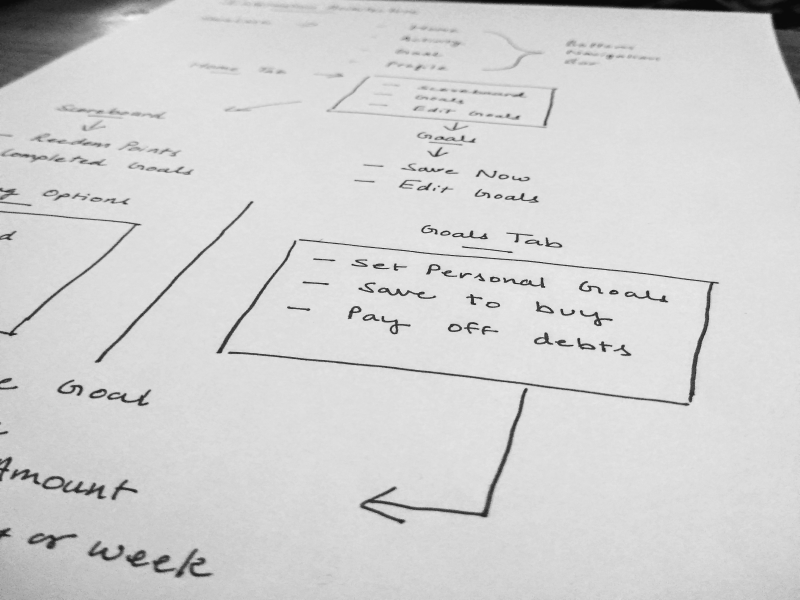 Information Architecture
Home
Activity
Goals
Profile
Bottom
Navigation
Bar
Home Tab
Scoreboard
Goals
Edit Goals
Scoreboard
Redeem Points
Completed Goals
Goals
Save Now
Edit Goals
Options
Goals Tab
Set Personal Goals
Save to buy
Pay off debts
Goal
Amount
or week